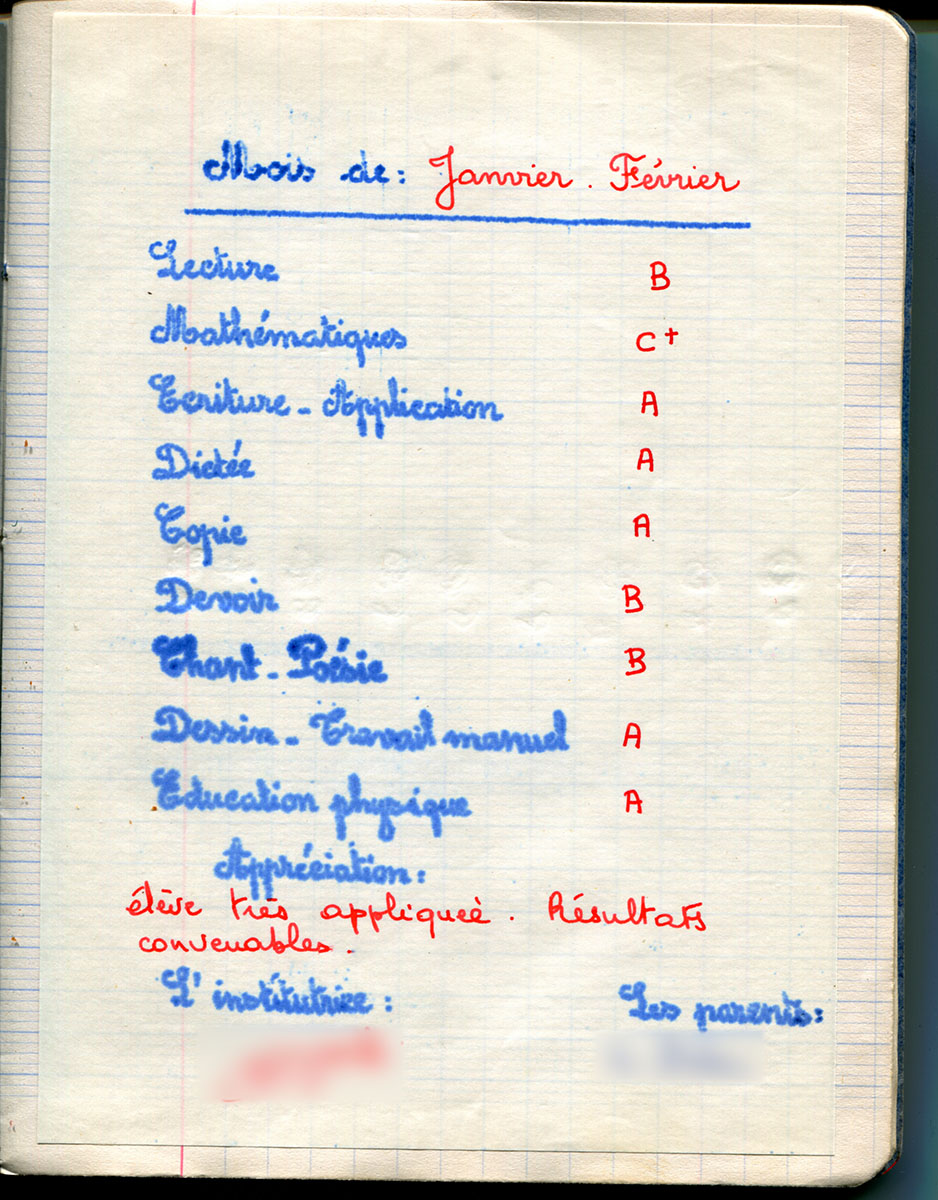 Mois de : Janvier . Février
Lecture B
Mathématiques C+
Ecriture - Application A
Dictée A
Copie A
Devoir B
Chant - Poésie B
Dessin - Travail manuel A
Education physique A
Appréciation :
élève très appliqueè . Résultats
convenables .
L'institutrice : Les parents :